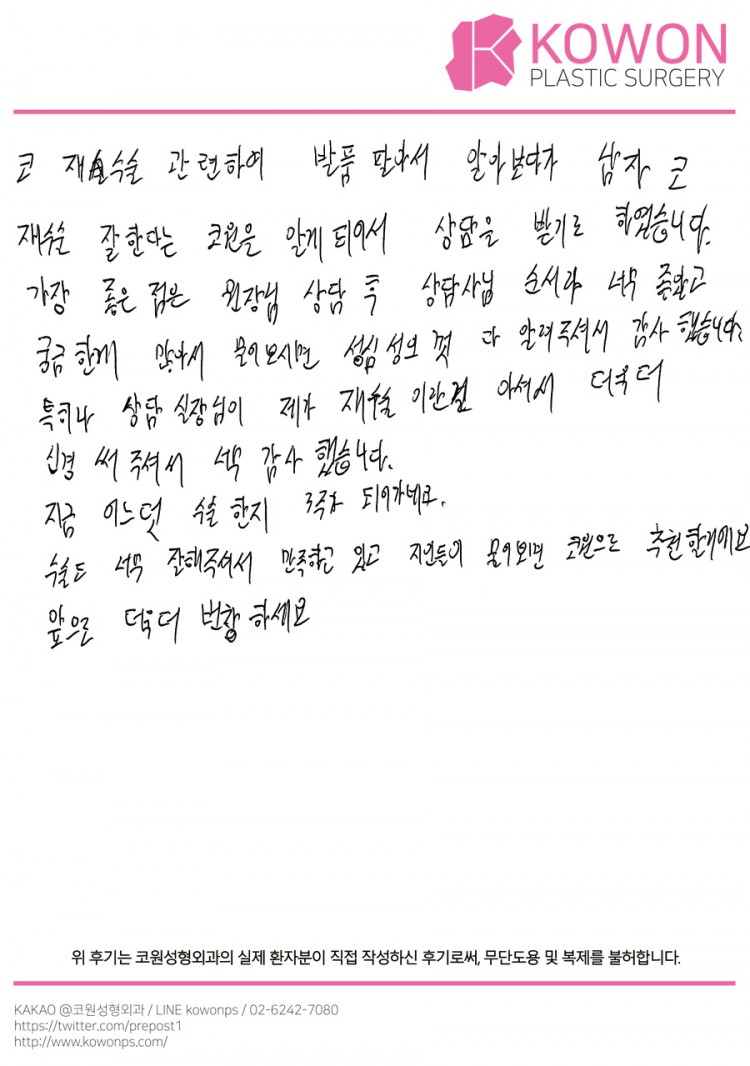 KOWON
PLASTIC SURGERY
코 재수술 관련하여 발품 팔아서 알아보다가 남자 코
재수술 잘한다는 코원을 알게 되어서 상담을 받기로 하였습니다.
가장 좋은 점은 원장님 상담 후 상담사님 순서라 너무 좋았고
궁금한게 많아서 물어보시면 성심성의 껏 다 알려주셔서 감사했습니다.
특히나 상담 실장님이 제가 재수술 이란걸 아셔서 더욱 더
신경 써 주셔서 너무 감사했습니다.
지금 어느덧 수술 한지 3주차 되어가네요.
수술도 너무 잘해주셔서 만족하고 있고 지인들이 물어보면 코원으로 추천할게요
앞으로 더욱더 번창 하세요
위 후기는 코원성형외과의 실제 환자분이 직접 작성하신 후기로써, 무단도용 및 복제를 불허합니다.
KAKAO @코원성형외과 / LINE kowonps / 02-6242-7080
https://twitter.com/prepost1
http://www.kowonps.com/